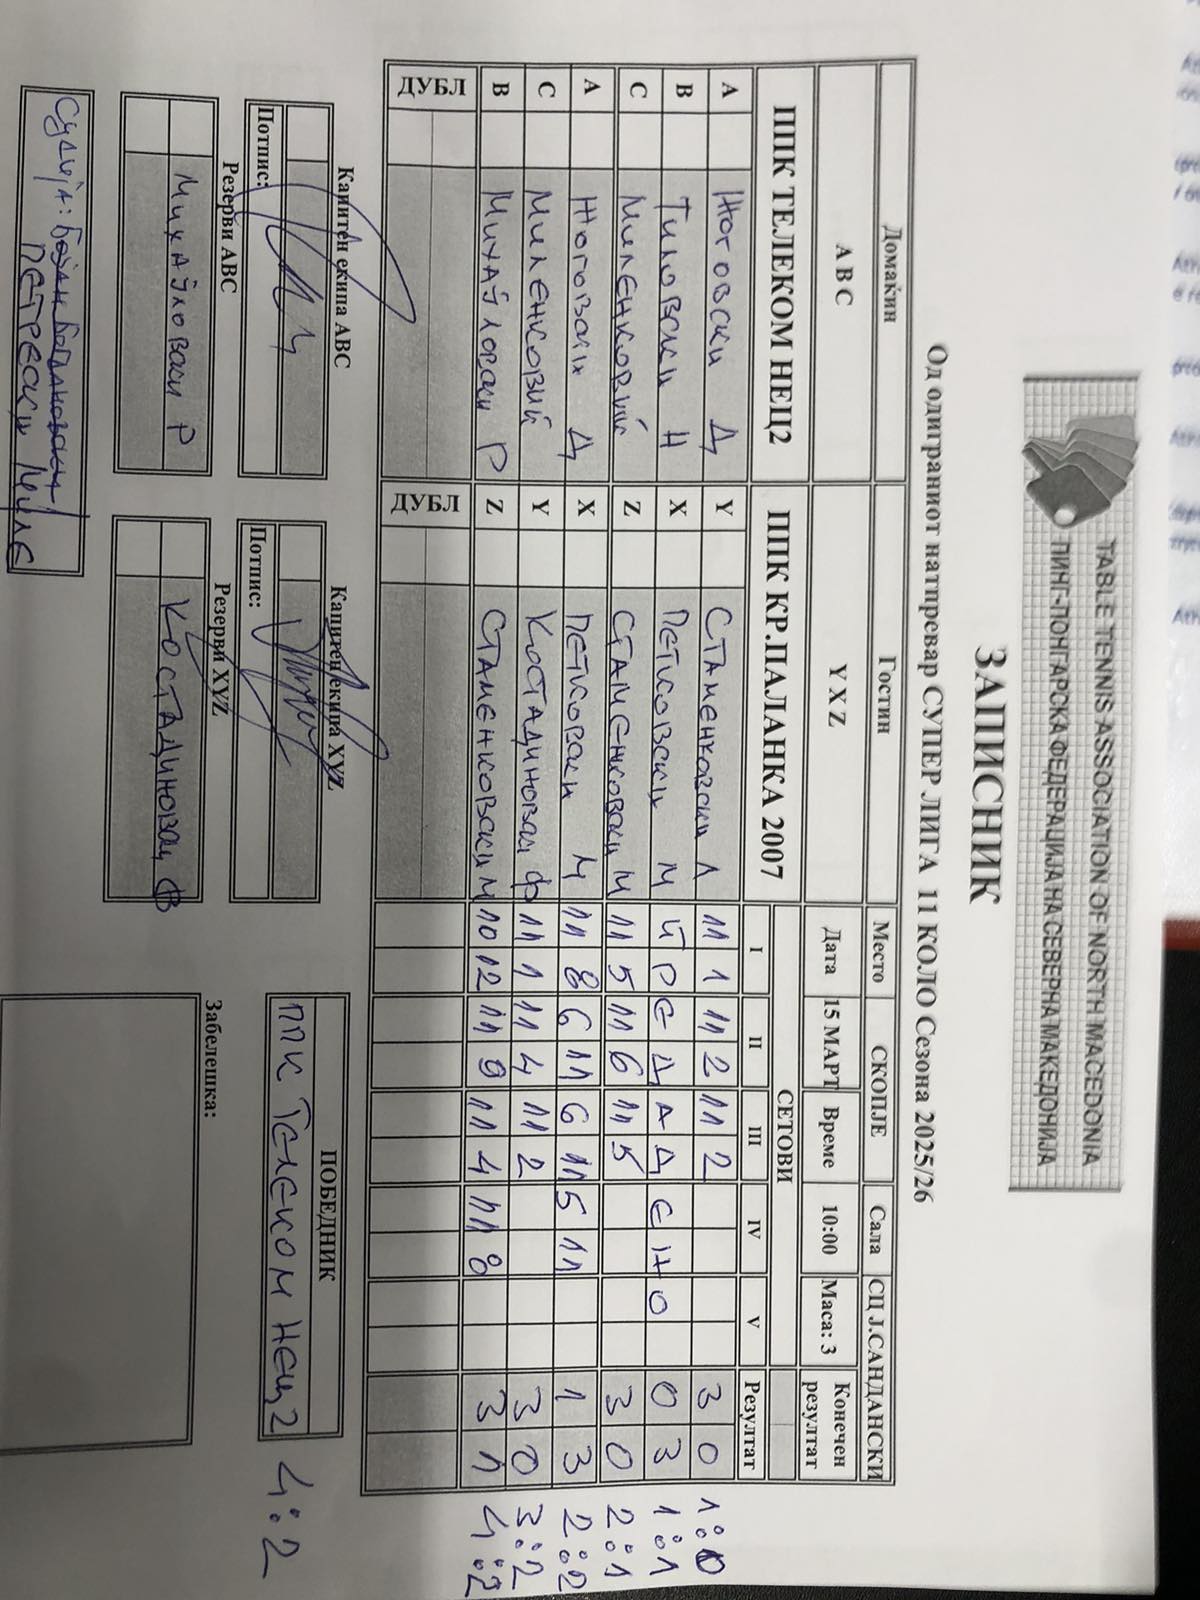 TABLE TENNIS ASSOCIATION OF NORTH MACEDONIA
ПИНГ-ПОНГАРСКА ФЕДЕРАЦИЈА НА СЕВЕРНА МАКЕДОНИЈА
ЗАПИСНИК
Од одиграниот натпревар СУПЕР ЛИГА 11 КОЛО Сезона 2025/26
Домаќин Гостин Место СКОПЈЕ Сала СЦ Ј.САНДАНСКИ
A B C Y X Z Дата 15 МАРТ Време 10:00 Маса: 3 Конечен резултат
ППК ТЕЛЕКОМ НЕЦ2 ППК КР.ПАЛАНКА 2007 СЕТОВИ
I II III IV V Резултат
A Жоговски Д Y Стаменковски Л 11 1 11 2 11 2 3 0 1:0
B Тиловски Н X Петковски М ПРЕДАДЕНО 0 3 1:1
C Миленковиќ Z Стаменковски М 11 5 11 6 11 5 3 0 2:1
A Жоговски Д X Петковски М 11 8 6 11 6 11 5 11 1 3 2:2
C Миленковиќ Y Костадиновски Ф 11 1 11 4 11 2 3 0 3:2
B Михајловски Р Z Стаменковски М 10 12 11 9 11 4 11 8 3 1 4:2
ДУБЛ ДУБЛ
Капитен екипа ABC Капитен екипа XYZ ПОБЕДНИК
Потпис: Потпис: ППК Телеком Нец 2 4:2
Резерви ABC Резерви XYZ Забелешка:
Михајловски Р Костадиновски Ф
Судија: Бојан Богдановски
Петрески Миле